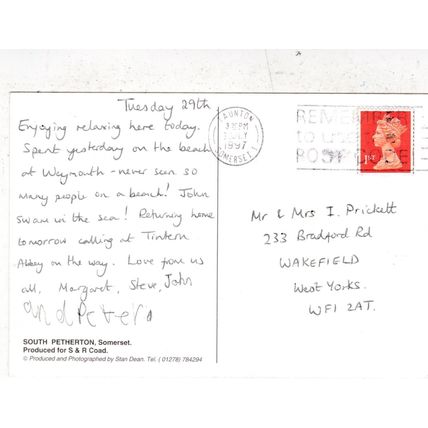 Tuesday 29th
Enjoying relaxing here today.
Spent yesterday on the beach
at Weymouth - never seen so
many people on a beach! John
swam in the sea! Returning home
tomorrow calling at Tintern
Abbey on the way. Love from us
all, Margaret, Steve, John
and Peter
SOUTH PETHERTON, Somerset.
Produced for S & R Coad.
© Produced and Photographed by Stan Dean. Tel. (01278) 784294
TAUNTON
1997
SOMERSET
REMEMBER
to use
POST
1ST
Mr & Mrs I. Prickett
233 Bradford Rd
WAKEFIELD
West Yorks.
WF1 2AT.